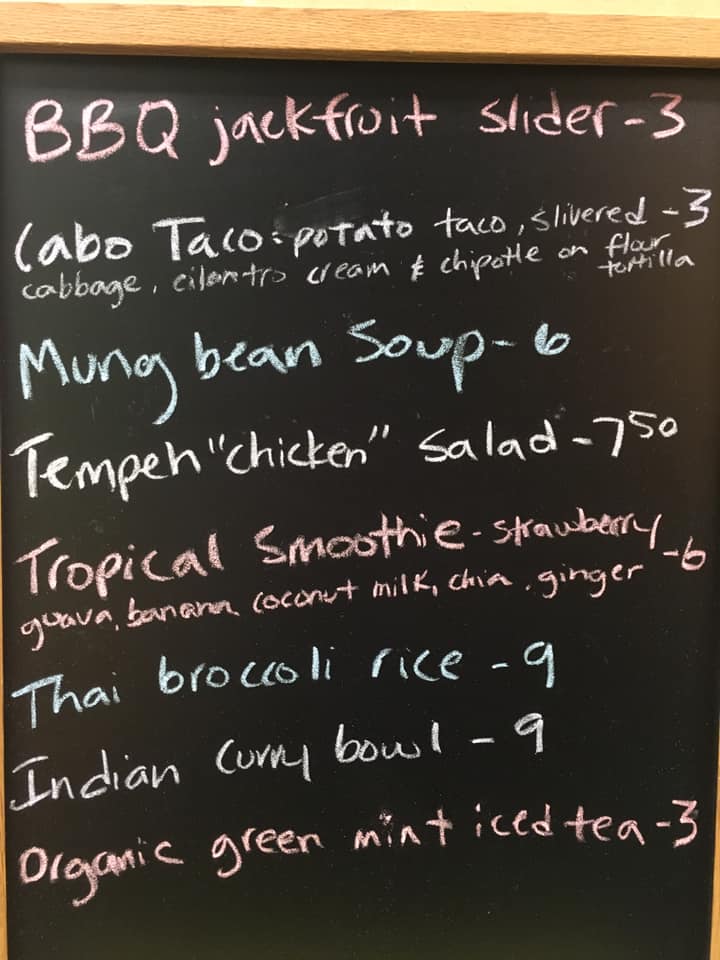 BBQ jackfruit slider-3
Cabo Taco: potato taco, slivered -3
cabbage, cilantro cream & chipotle on flour
tortilla
Mung bean Soup- 6
Tempeh "chicken" Salad -7 50
Tropical Smoothie - strawberry
guava, banana coconut milk, chia, ginger -6
Thai broccoli rice - 9
Indian Curry bowl - 9
Organic green mint iced tea -3